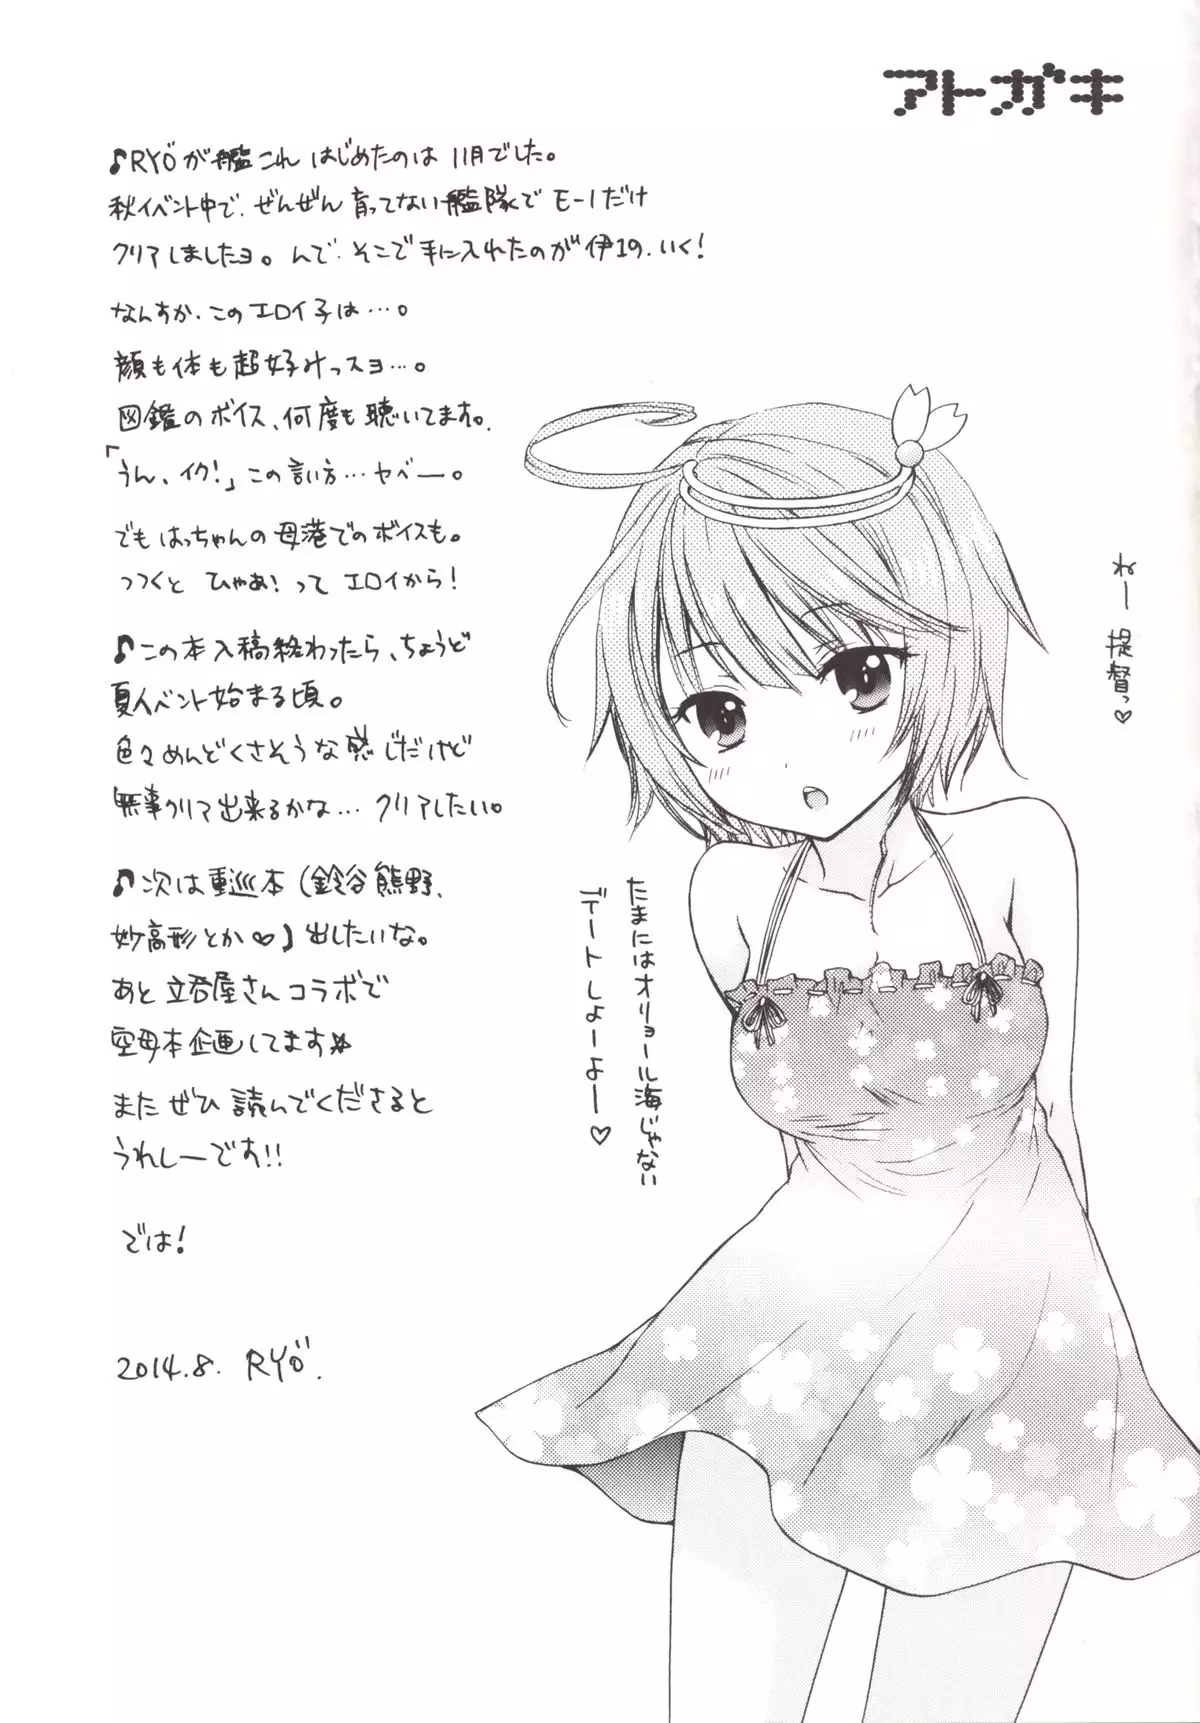 アトガキ
♪RYÖが艦これ はじめたのは 11月でした。
秋イベント中で、ぜんぜん育ってない艦隊でE-1だけ
クリアしましたヨ。んで、そこで手に入れたのが伊19、いく!
なんすか、このエロイ子は…。
顔も体も超好みっスヨ…。
図鑑のボイス、何度も聴いてます。
「うん、イク!」この言い方…ヤベー。
でもはっちゃんの母港でのボイスも。
つつくと ひゃあ!って エロイから!
♪この本入稿終わったら、ちょうど
夏イベント始まる頃。
色々めんどくさそうな感じだけど
無事クリア出来るかな…クリアしたい。
♪次は重巡本(鈴谷熊野、
妙高形とか♡)出したいな。
あと立呑屋さんコラボで
空母本企画してます☆
またぜひ読んでくださると
うれしーです!!
では!
2014.8. RYÖ.
ねー提督っ♡
たまにはオリョール海じゃない
デートしよーよー♡